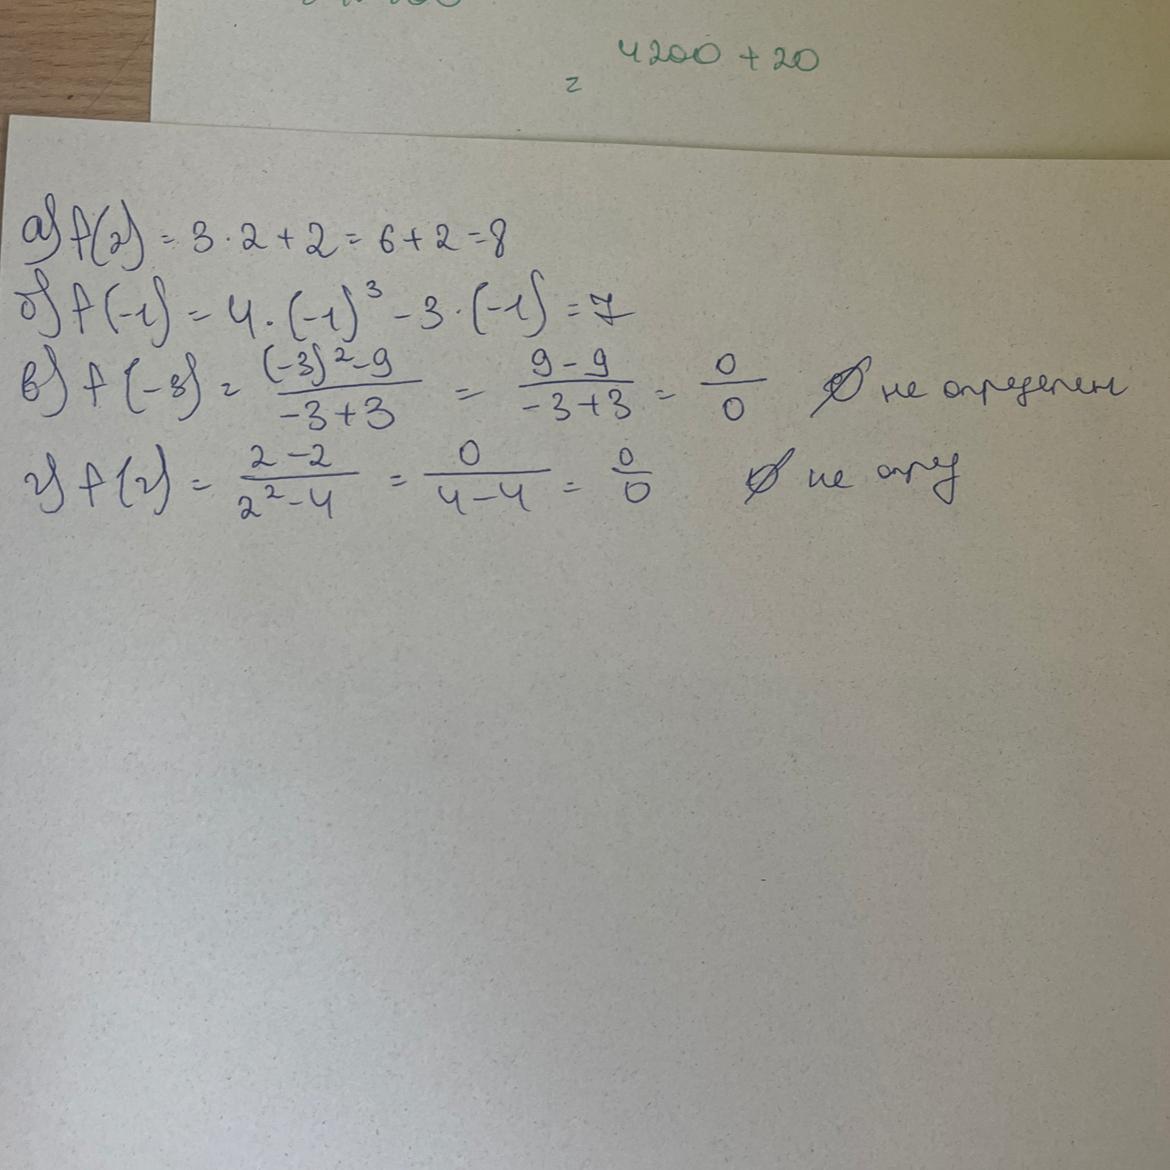 4200 + 20
=
а) f(2) = 3 · 2 + 2 = 6 + 2 = 8
б) f(-1) = 4 · (-1)³ - 3 · (-1) = 7
в) f(-3) = ((-3)² - 9)/(-3 + 3) = (9 - 9)/(-3 + 3) = 0/0 ∅ не определен
г) f(2) = (2 - 2)/(2² - 4) = 0/(4 - 4) = 0/0 ∅ не опред